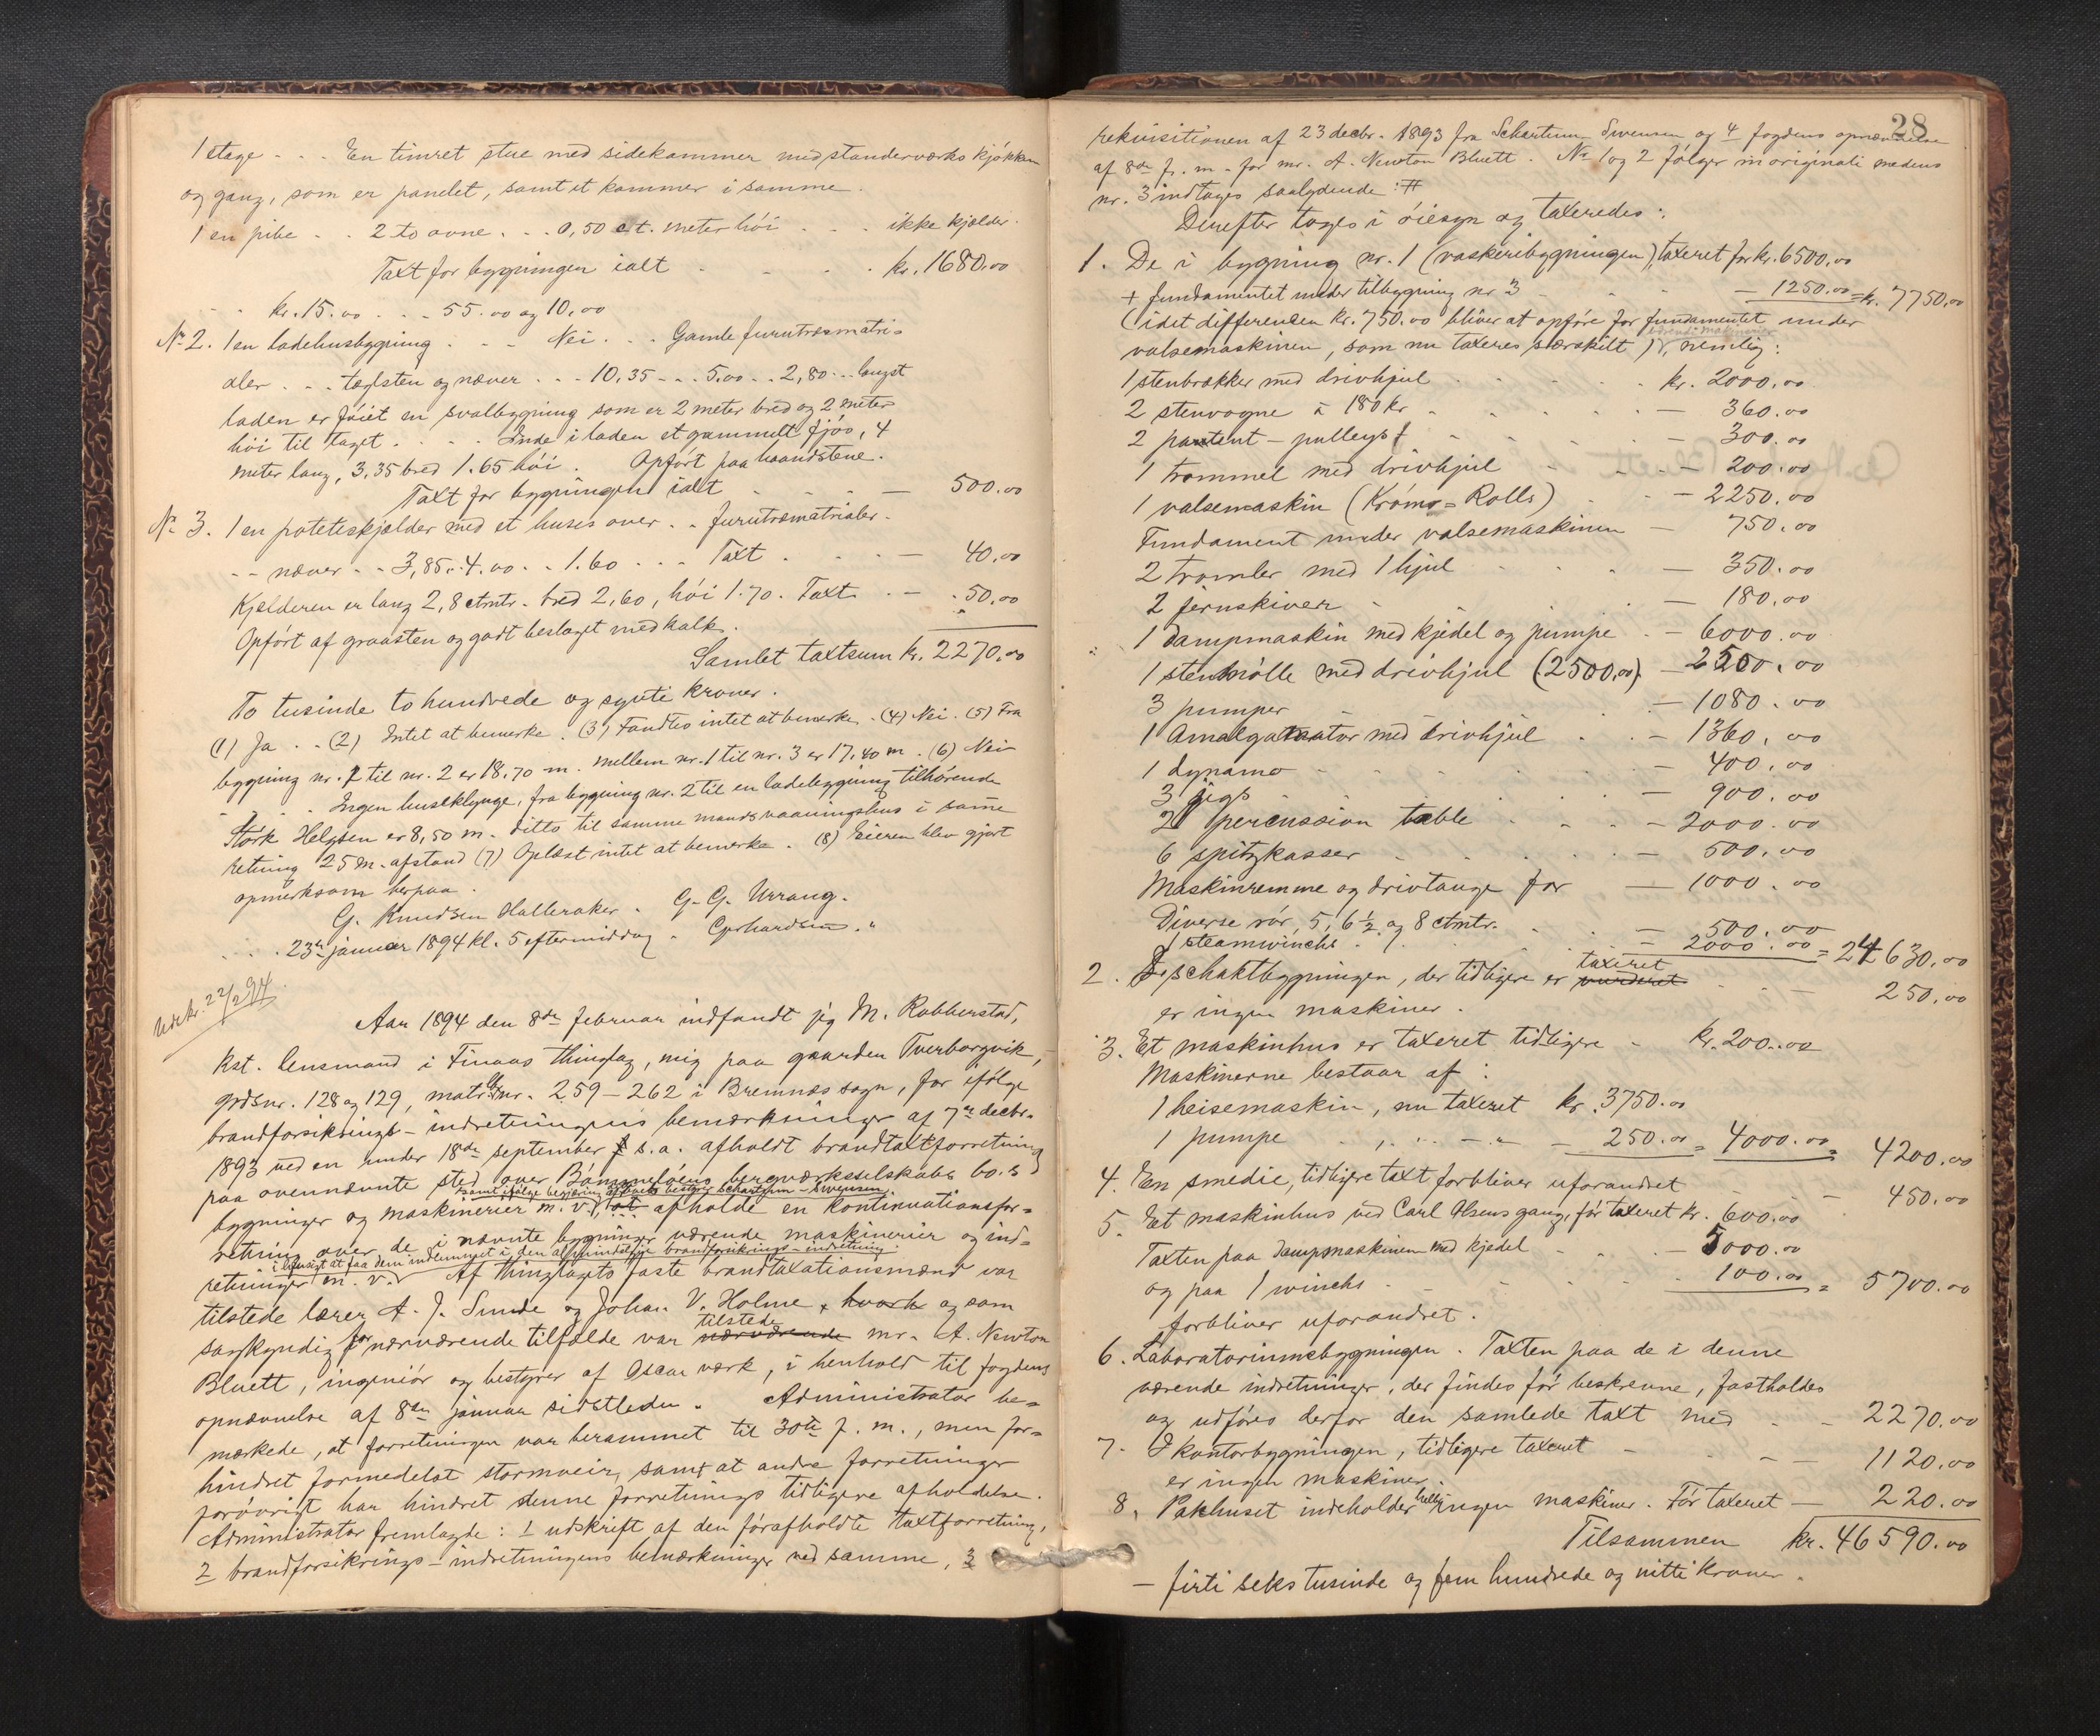 1 etage . . . En timret stue med sidekammer med standerværks kjøkken
og gang, som er panelet, samt et kammer i samme.
1 en pibe . . 2 to ovne . . . 0,50 ct. meter høi . . . ikke kjelder.
Taxt for bygningen ialt . . . . kr. 1680.00
. . kr. 15.00 . . . 55.00 og 10.00
No 2. 1 en ladehusbygning . . . Nei . . . Gamle furutræsmatri-
aler . . . taglsten og næver . . . 10,35 . . . 5.00 . . 2,80 . . . langst
laden er føiet en svalbygning som er 2 meter bred og 2 meter
høi til taget . . . . Inde i laden et gammelt fjøs, 4
meter lang, 3,35 bred 1.65 høi . Opført paa haandstene.
Taxt for bygningen ialt . . . — 500.00
No 3. 1 en poteteskjelder med et huses over . . furutræmatrialer.
- - næver . . 3,85 . . 4.00 . . 1.60 . . . Taxt . . . — 40.00
Kjelderen er lang 2,8 ctmtr. bred 2,60, høi 1.70. Taxt . — . 50.00
Opført af graasten og godt beslaget med kalk.
Samlet taxtsum kr. 2270.00
To tusinde to hundrede og sytti kroner.
(1) Ja . . (2) Intet at bemerke . (3) Fandtes intet at bemerke . (4) Nei . (5) Fra
bygning nr. 1 til nr. 2 er 18,70 m. mellem nr. 1 til nr. 3 er 17,40 m . (6) Nei
. . Ingen huseklynge, fra bygning nr. 2 til en ladebygning tilhørende
Størk Helgesen er 8,50 m. ditto til samme mands vaaningshus i samme
retning 25 m. afstand (7) Oplæst intet at bemerke . (8) Eieren blev gjort
opmerksom herpaa .
G. Knudsen Halleraker . G. G. Urrang.
. . . 23de januar 1894 kl. 5 eftermiddag . Gerhardsen . "
Udskr. 22/2 94.
Aar 1894 den 8de februar indfandt jeg M. Robberstad,
kst. lensmand i Finaas thinglag, mig paa gaarden Tverborgvik,
grdsnr. 128 og 129, matr. nr. 259 – 262 i Bremnæs sogn, for ifølge
brandforsikrings-indretningens bemærkninger af 7de decbr.
1893 ved en under 18de september s. a. afholdt brandtaxtforretning
paa ovennævnte sted over Bømmeløens bergværksselskabs bo.s
samt ifølge begjæring af boets bestyrer Schartum-Swensen
bygninger og maskinerier m. v. at afholde en kontinuationsfor-
retning over de i nævnte bygninger værende maskinerier og ind-
i hensigt at faa dem indlemmet i den almindelige brandforsikrings-indretning.
retninger m. v. Af thinglagets faste brandtaxationsmænd var
tilstede lærer A. J. Sunde og Johan V. Holme, hvork og som
tilstede
sagkyndig for nærværende tilfælde var nærværende mr. A. Newton
Bluett, ingeniør og bestyrer af Oscar værk, i henhold til fogdens
opnævnelse af 8de januar sidstleden. Administrator be-
mærkede, at forretningen var berammet til 30te f. m., men for-
hindret formedelst stormveir, samt at andre forretninger
forøvrigt har hindret denne forretnings tidligere afholdelse.
Administrator fremlagde: 1 udskrift af den førafholdte taxtforretning,
2 brandforsikrings-indretningens bemærkninger ved samme, 3
28
rekvisitionen af 23 decbr. 1893 fra Schartum Swensen og 4 fogdens opnævnelse
af 8de f. m. for mr. A. Newton Bluett. No 1 og 2 følger in originali medens
nr. 3 indtages saalydende: #
Derefter toges i øiesyn og taxeredes:
1. De i bygning nr. 1 (vaskeribygningen), taxeret for kr. 6500.00
+ fundamentet under tilbygning nr 3 — 1250.00 = kr. 7750.00
(idet differensen kr. 750.00 bliver at opføre for fundamentet under
værende maskinerier
valsemaskinen, som nu taxeres særskilt), nemlig:
1 stenbrækker med drivhjul . . . . . kr. 2000.00
2 stenvogne a 180 kr . . . . . — 360.00
2 patent-pulleys . . . . — 300.00
1 trommel med drivhjul . . . — 200.00
1 valsemaskin (Kröms-Rolls) . . — 2250.00
Fundament under valsemaskinen — 750.00
2 tromler med 1 hjul . . . — 350.00
2 jernskiver . . . — 180.00
1 dampmaskin med kjedel og pumpe . — 6000.00
1 stenmølle med drivhjul (2500.00) — 2500.00
3 pumper . . . — 1080.00
1 Amalgamator med drivhjul . . — 1360.00
1 dynamo . . . . — 400.00
3 jigs . . . . — 900.00
2 percussion table . . . — 2000.00
6 spitzkasser . . . . — 500.00
Maskinremme og drivtauge for — 1000.00
Diverse rør, 5, 6½ og 8 ctmtr. . . — 500.00
1 steamwinche . . . = 2000.00 = 24630.00
taxeret
2. I schaktbygningen, der tidligere er vurderet . . — 250.00
er ingen maskiner.
3. Et maskinhus er taxeret tidligere . kr. 200.00
Maskinerne bestaar af:
1 heisemaskin, nu taxeret kr. 3750.00
1 pumpe . „ . „ — „ — 250.00 = 4000.00 = 4200.00
4. En smedie, tidligere taxt forbliver uforandret . . — 450.00
5. Et maskinhus ved Carl Olsens gang, før taxeret kr. 600.00
Taxten paa dampmaskinen med kjedel . . — 5000.00
og paa 1 winche . . . . 100.00 = 5700.00
forbliver uforandret.
6. Laboratoriumsbygningen. Taxten paa de i denne
værende indretninger, der findes før beskrevne, fastholdes
og udføres derfor den samlede taxt med . . 2270.00
7. I kontorbygningen, tidligere taxeret — . — 1120.00
er ingen maskiner.
8. Pakhuset indeholder heller ingen maskiner. Før taxeret — 220.00
Tilsammen kr. 46590.00
— firti seks tusinde og fem hundrede og nitti kroner.